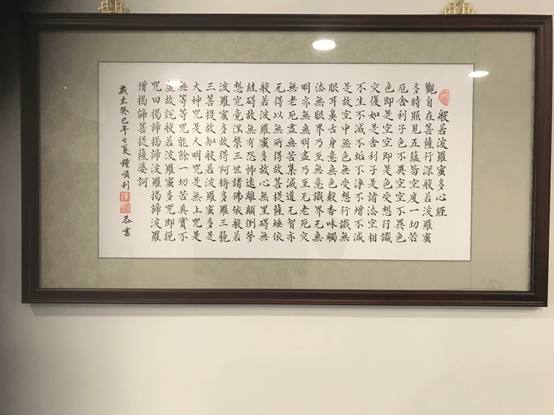 般若波羅蜜多心經
觀自在菩薩行深般若波羅蜜
多時照見五蘊皆空度一切苦
厄舍利子色不異空空不異色
色即是空空即是色受想行識
亦復如是舍利子是諸法空相
不生不滅不垢不淨不增不減
是故空中無色無受想行識無
眼耳鼻舌身意無色聲香味觸
法無眼界乃至無意識界无無
明亦無無明盡乃至无老死亦
無老死盡無苦集滅道无智亦
无得以無所得故菩提薩埵依
般若波羅蜜多故心無罣礙無
罣礙故無有恐怖遠離顛倒夢
想究竟涅槃三世諸佛依般若
波羅蜜多故得阿耨多羅三藐
三菩提故知般若波羅蜜多是
大神咒是大明咒是無上咒是
無等等咒能除一切苦真實不
虛故說般若波羅蜜多咒即說
咒曰揭諦揭諦波羅揭諦波羅
僧揭諦菩提薩婆訶
歲在癸巳年七夏鍾順利恭書